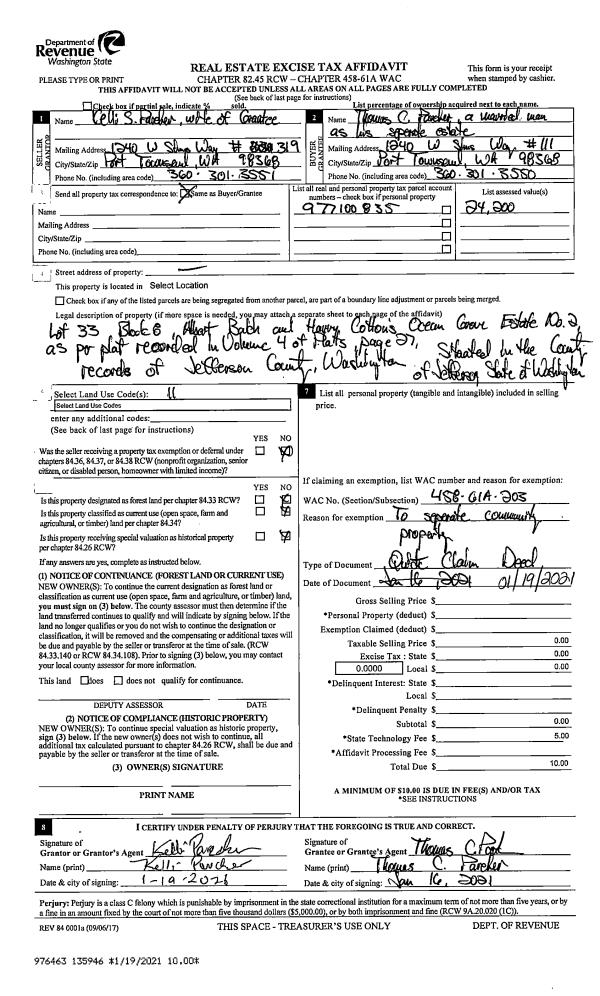 Department of
Revenue
Washington State
PLEASE TYPE OR PRINT
REAL ESTATE EXCISE TAX AFFIDAVIT
CHAPTER 82.45 RCW – CHAPTER 458-61A WAC
This form is your receipt
when stamped by cashier.
THIS AFFIDAVIT WILL NOT BE ACCEPTED UNLESS ALL AREAS ON ALL PAGES ARE FULLY COMPLETED
(See back of last page for instructions)
Check box if partial sale, indicate % sold.
List percentage of ownership acquired next to each name.
1
Name Kelli S. Parcher, wife of Grantee
Mailing Address 1240 W Sims Way # 319
City/State/Zip Port Townsend, WA 98368
Phone No. (including area code) 360-301-3551
SELLER
GRANTOR
2
Name Thomas C. Parcher, a married man
as his seperate estate
Mailing Address 1240 W Sims Way #111
City/State/Zip Port Townsend, WA 98368
Phone No. (including area code) 360-301-3550
BUYER
GRANTEE
Send all property tax correspondence to: Same as Buyer/Grantee
Name
Mailing Address
City/State/Zip
Phone No. (including area code)
List all real and personal property tax parcel account
numbers – check box if personal property
977100835
List assessed value(s)
24,200
Street address of property:
This property is located in Select Location
Check box if any of the listed parcels are being segregated from another parcel, are part of a boundary line adjustment or parcels being merged.
Legal description of property (if more space is needed, you may attach a separate sheet to each page of the affidavit)
Lot 33, Block 8, Albert Balch and Harry Cotton's Ocean Grove Estate No. 2,
as per plat recorded in Volume 4 of Plats, page 27,
records of Jefferson County, Washington
Situated in the County
of Jefferson State of Washington
Select Land Use Code(s): 11
Select Land Use Codes
enter any additional codes:
(See back of last page for instructions)
YES NO
Was the seller receiving a property tax exemption or deferral under
chapters 84.36, 84.37, or 84.38 RCW (nonprofit organization, senior
citizen, or disabled person, homeowner with limited income)?
YES NO
Is this property designated as forest land per chapter 84.33 RCW?
Is this property classified as current use (open space, farm and
agricultural, or timber) land per chapter 84.34?
Is this property receiving special valuation as historical property
per chapter 84.26 RCW?
If any answers are yes, complete as instructed below.
(1) NOTICE OF CONTINUANCE (FOREST LAND OR CURRENT USE)
NEW OWNER(S): To continue the current designation as forest land or
classification as current use (open space, farm and agriculture, or timber) land,
you must sign on (3) below. The county assessor must then determine if the
land transferred continues to qualify and will indicate by signing below. If the
land no longer qualifies or you do not wish to continue the designation or
classification, it will be removed and the compensating or additional taxes will
be due and payable by the seller or transferor at the time of sale. (RCW
84.33.140 or RCW 84.34.108). Prior to signing (3) below, you may contact
your local county assessor for more information.
This land does does not qualify for continuance.
DEPUTY ASSESSOR DATE
(2) NOTICE OF COMPLIANCE (HISTORIC PROPERTY)
NEW OWNER(S): To continue special valuation as historic property,
sign (3) below. If the new owner(s) does not wish to continue, all
additional tax calculated pursuant to chapter 84.26 RCW, shall be due and
payable by the seller or transferor at the time of sale.
(3) OWNER(S) SIGNATURE
PRINT NAME
7
List all personal property (tangible and intangible) included in selling
price.
If claiming an exemption, list WAC number and reason for exemption:
WAC No. (Section/Subsection) 458-61A-203
Reason for exemption To seperate community
property
Type of Document Quite Claim Deed
Date of Document Jan 16, 2021 01/19/2021
Gross Selling Price $
*Personal Property (deduct) $
Exemption Claimed (deduct) $
Taxable Selling Price $ 0.00
Excise Tax : State $ 0.00
0.0000 Local $ 0.00
*Delinquent Interest: State $
Local $
*Delinquent Penalty $
Subtotal $ 0.00
*State Technology Fee $ 5.00
*Affidavit Processing Fee $
Total Due $ 10.00
A MINIMUM OF $10.00 IS DUE IN FEE(S) AND/OR TAX
*SEE INSTRUCTIONS
8
I CERTIFY UNDER PENALTY OF PERJURY THAT THE FOREGOING IS TRUE AND CORRECT.
Signature of
Grantor or Grantor's Agent Kelli Parcher
Name (print) Kelli Parcher
Date & city of signing: 1-19-2021
Signature of
Grantee or Grantee's Agent Thomas C.
Name (print) Thomas C. Parcher
Date & city of signing: Jan 16, 2021
Perjury: Perjury is a class C felony which is punishable by imprisonment in the state correctional institution for a maximum term of not more than five years, or by
a fine in an amount fixed by the court of not more than five thousand dollars ($5,000.00), or by both imprisonment and fine (RCW 9A.20.020 (1C)).
REV 84 0001a (09/06/17)
THIS SPACE - TREASURER'S USE ONLY
DEPT. OF REVENUE
976463 135946 *1/19/2021 10.00*